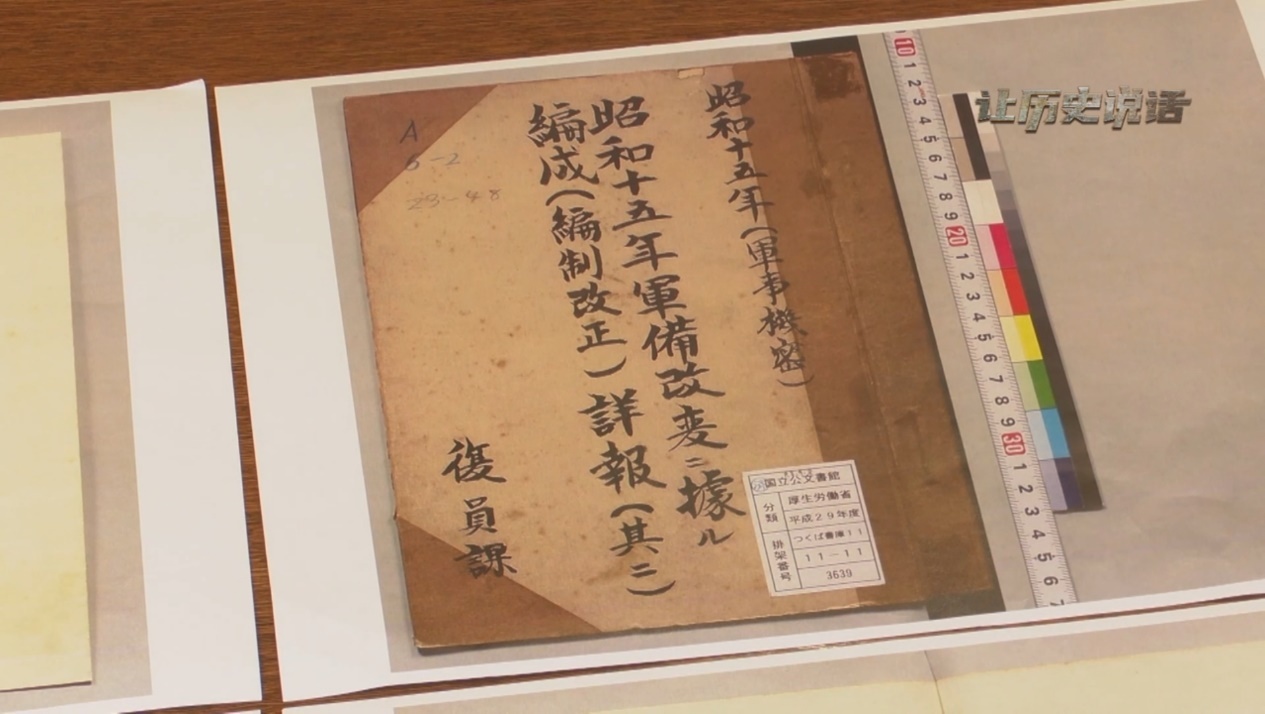 让历史说话
昭和十五年(軍事機密)
昭和十五年軍備改変ニ據ル
編成(編制改正)詳報(其二)
復員課
A
6-2
23-48
国立公文書館
分類
厚生労働省
平成29年度
つくば書庫11
排架番号
11-11
3639
10 1 2 3 4 5 6 7 8 9 20 1 2 3 4 5 6 7 8 9 30 1 2 3 4 5 6 7